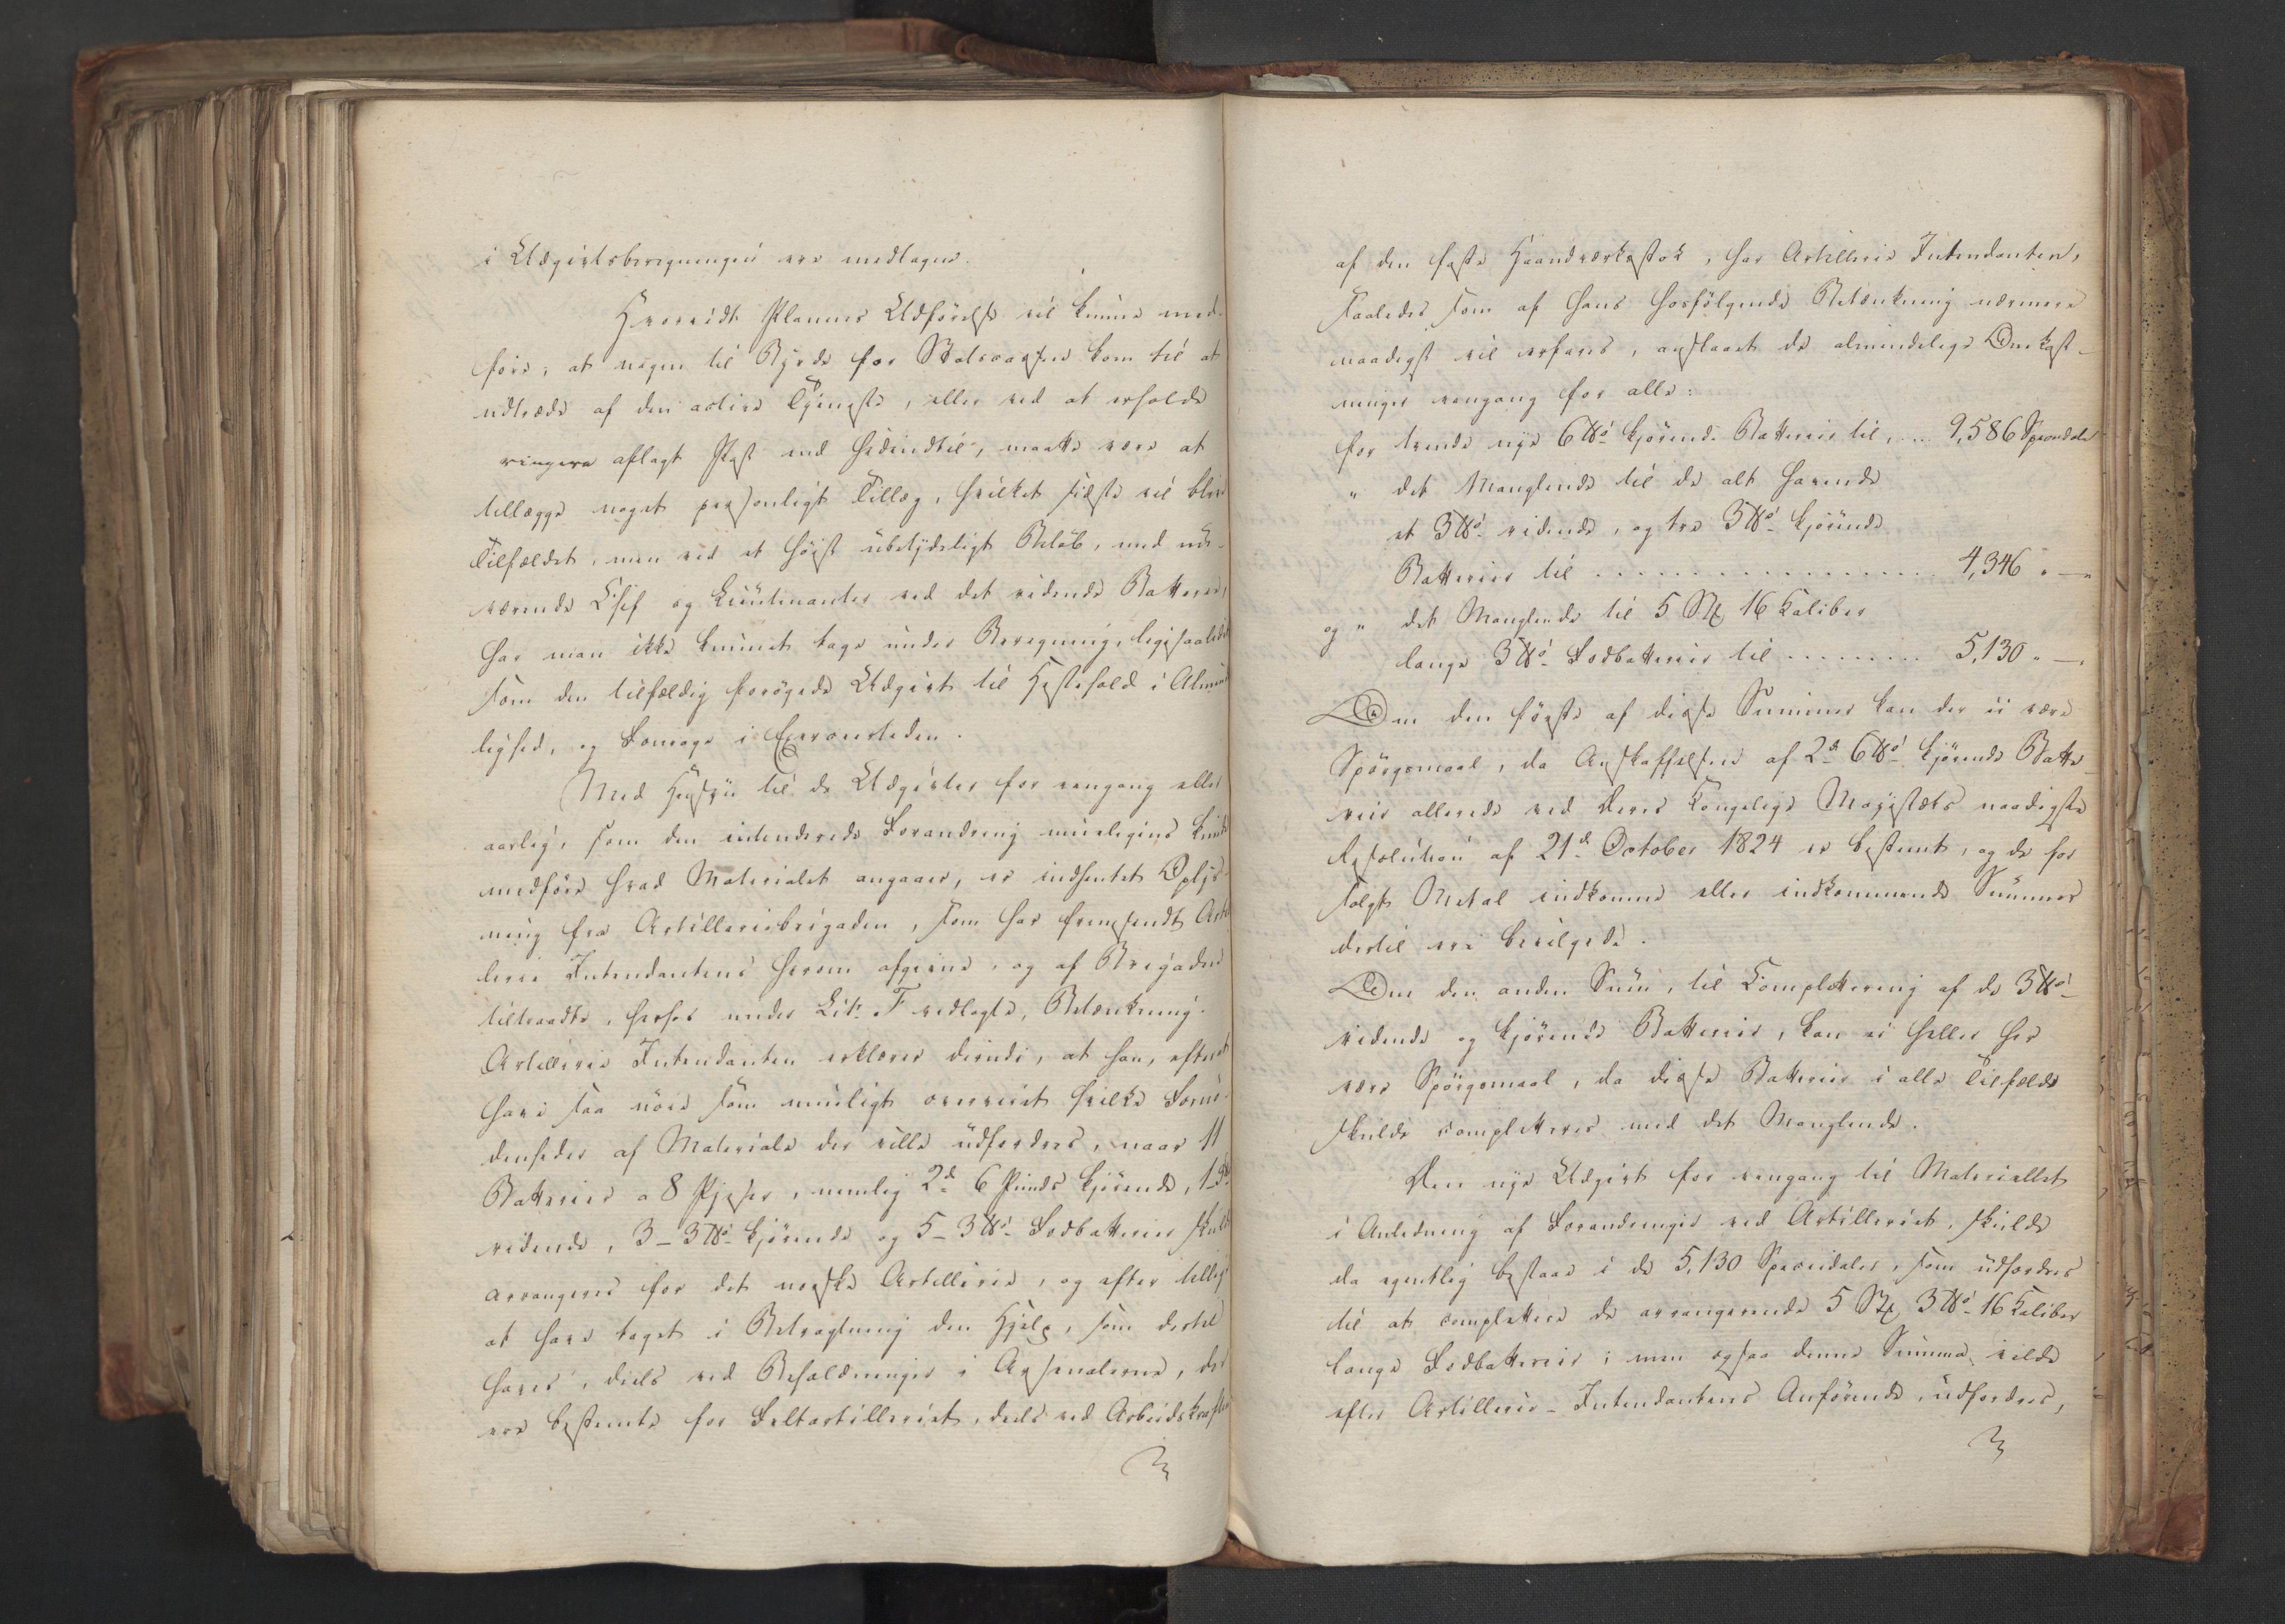 i Udgivtsberegningen ere medtagne.
Hvorvidt Planens Udförelse vil kunne med-
före, at nogen til Byrde for Statscassen kom til at
udtræde af den active Tjeneste, eller ved at erholde
ringere aflagt Post end hidindtil, maatte være at
tillægge noget personligt Tillæg, hvilket sidste vil blive
Tilfældet, men ved et höist ubetydeligt Belöb, med nu-
værende Chef og Lieutenanter ved det ridende Batterie,
har man ikke kunnet tage under Beregning, ligesaalidet
som den tilfældig forögede Udgivt til Hestehold i Almin-
lighed, og Fourage i Exerceertiden.
Med Hensyn til de Udgivter for eengang eller
aarlig, som den intenderede Forandring mueligens kunde
medföre hvad Materialet angaaer, er indhentet Oplys-
ning fra Artilleriebrigaden, som har fremsendt Artil-
lerie Intendantens herom afgivne, og af Brigaden
tiltraadte, herhos under Litr. F vedlagte, Betænkning.
Artillerie Intendanten erklærer derudi, at han, efterat
have saa nöie som mueligt overveiet hvilke Fornö-
denheder af Materiale der ville udfordres, naar 11
Batterier a 8 Pjeser, nemlig 2de 6 Punds kjörende, 1 3 ℔'
ridende, 3 - 3 ℔'s kjörende og 5 - 3 ℔'s Fodbatterier skulde
arrangeres for det norske Artillerie, og efter tillige
at have taget i Betragtning den Hjelp, som dertil
haves, deels ved Beholdninger i Arsenalerne, der
ere bestemte for Feltartilleriet, deels ved Arbeidskrafter
af den faste Haandværkstok, har Artillerie Intendanten,
saaledes som af hans hosfölgende Betænkning nærmere
naadigst vil erfares, anslaaet de almindelige Omkost-
ninger eengang for alle:
for trende nye 6 ℔'s kjörende Batterier til, .... 9,586 Speciedaler
" det Manglende til de alt havende
et 3 ℔'s ridende, og tre 3 ℔'s kjörende
Batterier til ................ 4,346 " — "
og " det Manglende til 5 Stk 16 Kaliber
lange 3 ℔'s Fodbatterier til ........ 5,130 " — "
Om den förste af disse Summer kan der ei være
Spörgsmaal, da Anskaffelsen af 2de 6 ℔'s kjörende Batte-
rier allerede ved Deres Kongelige Majestæts naadigste
Resolution af 21de October 1824 er bestemt, og de for
solgt Metal indkomne eller indkommende Summer
dertil ere bevilgede.
Om den anden Sum, til Complettering af de 3 ℔'s
ridende og kjörende Batterier, kan ei heller her
være Spörgsmaal, da disse Batterier i alle Tilfælde
skulde completteres med det Manglende.
Den nye Udgivt for eengang til Materiellet
i Anledning af Forandringer ved Artilleriet, skulde
da egentlig bestaae i de 5,130 Speciedaler, som udfordres
til at complettere de arrangerende 5 Stk 3 ℔'s 16 Kaliber
lange Fodbatterier; men ogsaa denne Summa vilde
efter Artillerie-Intendantens Anförende, udfordres,